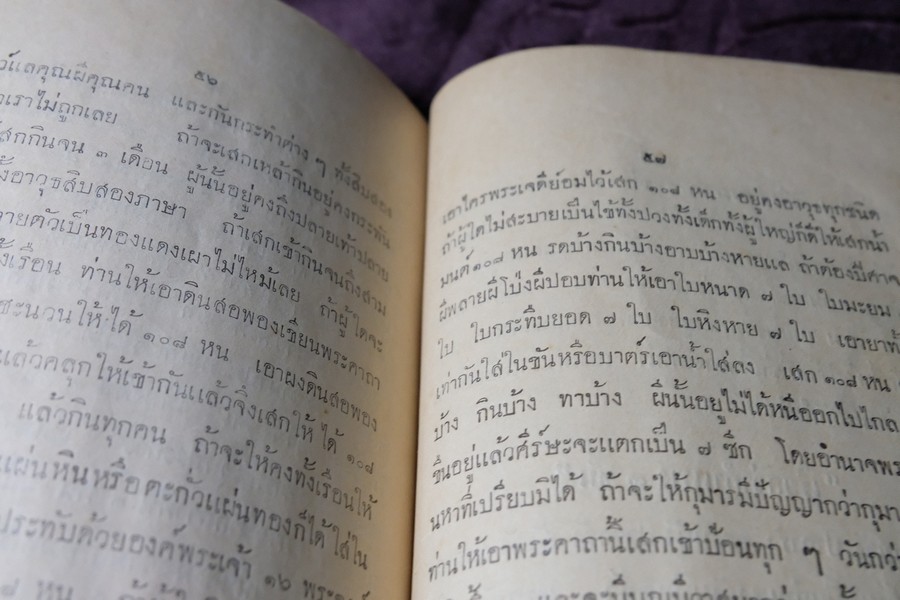 ๕๖
ว์แลคุณผีคุณคน และกันกระทำต่าง ๆ ทั้งสิบสอง
เราไม่ถูกเลย ถ้าจะเสกเหล้ากินอยู่คงกระพัน
สกกินจน ๓ เดือน ผู้นั้นอยู่คงถึงปลายเท้าปลาย
อาวุธสิบสองภาษา ถ้าเสกเข้ากินจนถึงสาม
ายตัวเป็นทองแดงเผาไม่ไหม้เลย ถ้าผู้ใดจะ
งเรือน ท่านให้เอาดินสอพองเขียนพระคาถา
ชะนวนให้ได้ ๑๐๘ หน เอาผงดินสอพอง
แล้วคลุกให้เข้ากันแล้วจึ่งเสกให้ได้ ๑๐๘
แล้วกินทุกคน ถ้าจะให้คงทั้งเรือนให้
แผ่นหินหรือตะกั่วแผ่นทองก็ได้ใส่ใน
ประทับด้วยองค์พระเจ้า ๑๖
หน
๕๗
เอาไครพระเจดีย์อมไว้เสก ๑๐๘ หน อยู่คงอาวุธทุกชนิด
ถ้าผู้ใดไม่สะบายเป็นไข้ทั้งปวงทั้งเด็กทั้งผู้ใหญ่ก็ดีให้เสกน้ำ
มนต์ ๑๐๘ หน รดบ้างกินบ้างอาบบ้างหายแล ถ้าต้องปีศาจ
ผีพลายผีโป่งผีปอบท่านให้เอาใบหนาด ๗ ใบ ใบมะยม
ใบ ใบกระทืบยอด ๗ ใบ ใบหิงหาย ๗ ใบ เอายาทั้
เท่ากันใส่ในขันหรือบาตร์เอาน้ำใส่ลง เสก ๑๐๘ หน
บ้าง กินบ้าง ทาบ้าง ผีนั้นอยู่ไม่ได้หนีออกไปไกล
ขืนอยู่แล้วศีร์ษะจะแตกเป็น ๗ ซีก โดยอำนาจพร
นหาที่เปรียบมิได้ ถ้าจะให้กุมารมีปัญญากว่ากุมา
ท่านให้เอาพระคาถานี้เสกเข้าป้อนทุก ๆ วันกว่า